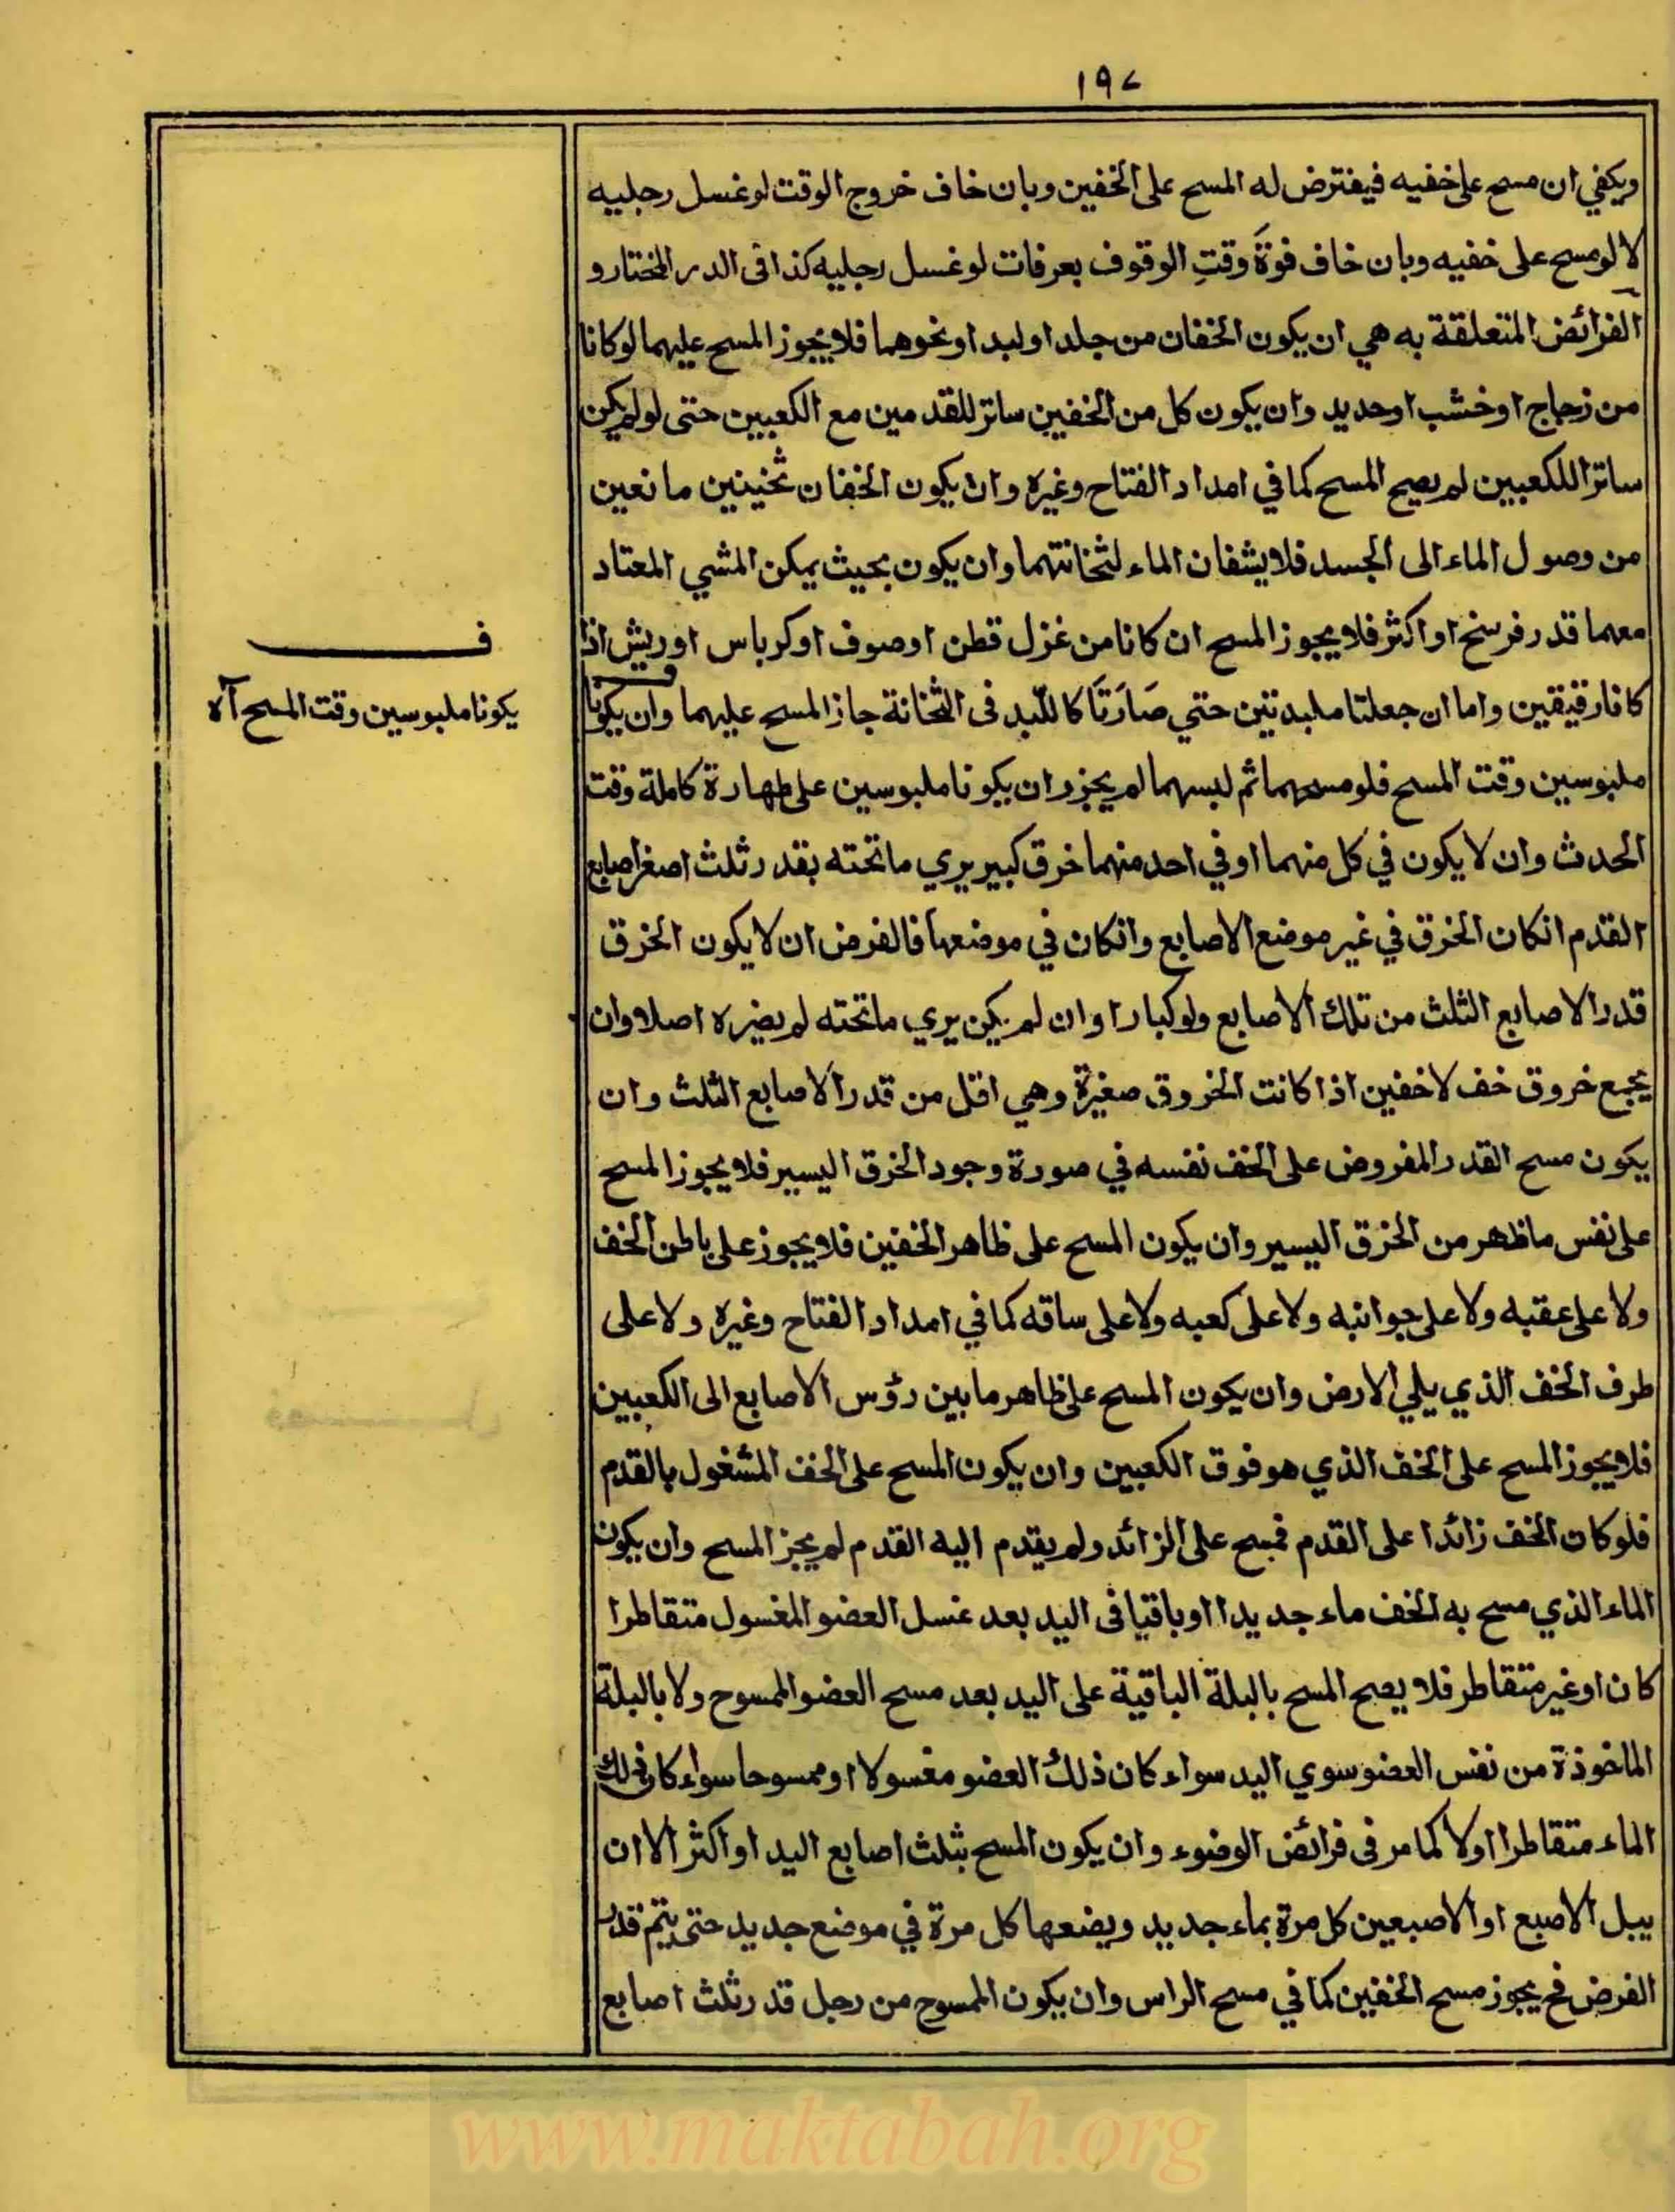 ١٩٧
ويكفي ان مسح على خفيه فيفترض له المسح على الخفين وبان خاف خروج الوقت لو غسل رجليه
لا لو مسح على خفيه وبان خاف فوةَ وقتِ الوقوف بعرفات لو غسل رجليه كذا فى الدر المختار و
الفرائض المتعلقة به هي ان يكون الخفان من جلد او لبد او نحوهما فلا يجوز المسح عليهما لو كانا
من زجاج او خشب او حديد وان يكون كل من الخفين ساتر للقدمين مع الكعبين حتى لو لم يكن
ساترا للكعبين لم يصح المسح كما في امداد الفتاح وغيره وان يكون الخفان ثخينين مانعين
من وصول الماء الى الجسد فلا يشفان الماء لثخانتهما وان يكون بحيث يمكن المشي المعتاد
معهما قدر فرسخ او اكثر فلا يجوز المسح ان كانا من غزل قطن او صوف او كرباس او ريش اذا
كانا رقيقين واما ان جعلتا ملبدتين حتي صَارَتَا كاللّبد فى الثخانة جاز المسح عليهما وان يكونا
ملبوسين وقت المسح فلو مسحهما ثم لبسهما لم يجز وان يكونا ملبوسين على طهارة كاملة وقت
الحدث وان لا يكون في كل منهما او في احد منهما خرق كبير يري ما تحته بقدر ثلث اصغر اصابع
القدم انكان الخرق في غير موضع الاصابع وانكان في موضعها فالفرض ان لا يكون الخرق
قدر الاصابع الثلث من تلك الاصابع ولو كبارا وان لم يكن يري ما تحته لم يضره اصلا وان
يجمع خروق خف لا خفين اذا كانت الخروق صغيرة وهي اقل من قدر الاصابع الثلث وان
يكون مسح القدر المفروض على الخف نفسه في صورة وجود الخرق اليسير فلا يجوز المسح
على نفس ما ظهر من الخرق اليسير وان يكون المسح على ظاهر الخفين فلا يجوز على باطن الخف
ولا على عقبه ولا على جوانبه ولا على كعبه ولا على ساقه كما في امداد الفتاح وغيره ولا على
طرف الخف الذي يلي الارض وان يكون المسح على ظاهر ما بين رؤس الاصابع الى الكعبين
فلا يجوز المسح على الخف الذي هو فوق الكعبين وان يكون المسح على الخف المشغول بالقدم
فلو كان الخف زائدا على القدم فمسح على الزائد ولم يقدم اليه القدم لم يجز المسح وان يكون
الماء الذي مسح به الخف ماء جديدا او باقيا فى اليد بعد غسل العضو المغسول متقاطرا
كان او غير متقاطر فلا يصح المسح بالبلة الباقية على اليد بعد مسح العضو الممسوح ولا بالبلة
الماخوذة من نفس العضو سوي اليد سواء كان ذلك العضو مغسولا او ممسوحا سواء كان ذلك
الماء متقاطرا اولا كما مر فى فرائض الوضوء وان يكون المسح بثلث اصابع اليد او اكثر الا ان
يبل الاصبع او الاصبعين كل مرة بماء جديد ويضعها كل مرة في موضع جديد حتى يتم قدر
الفرض فح يجوز مسح الخفين كما في مسح الراس وان يكون الممسوح من رجل قدر ثلث اصابع
ف
يكونا ملبوسين وقت المسح آه
www.maktabah.org